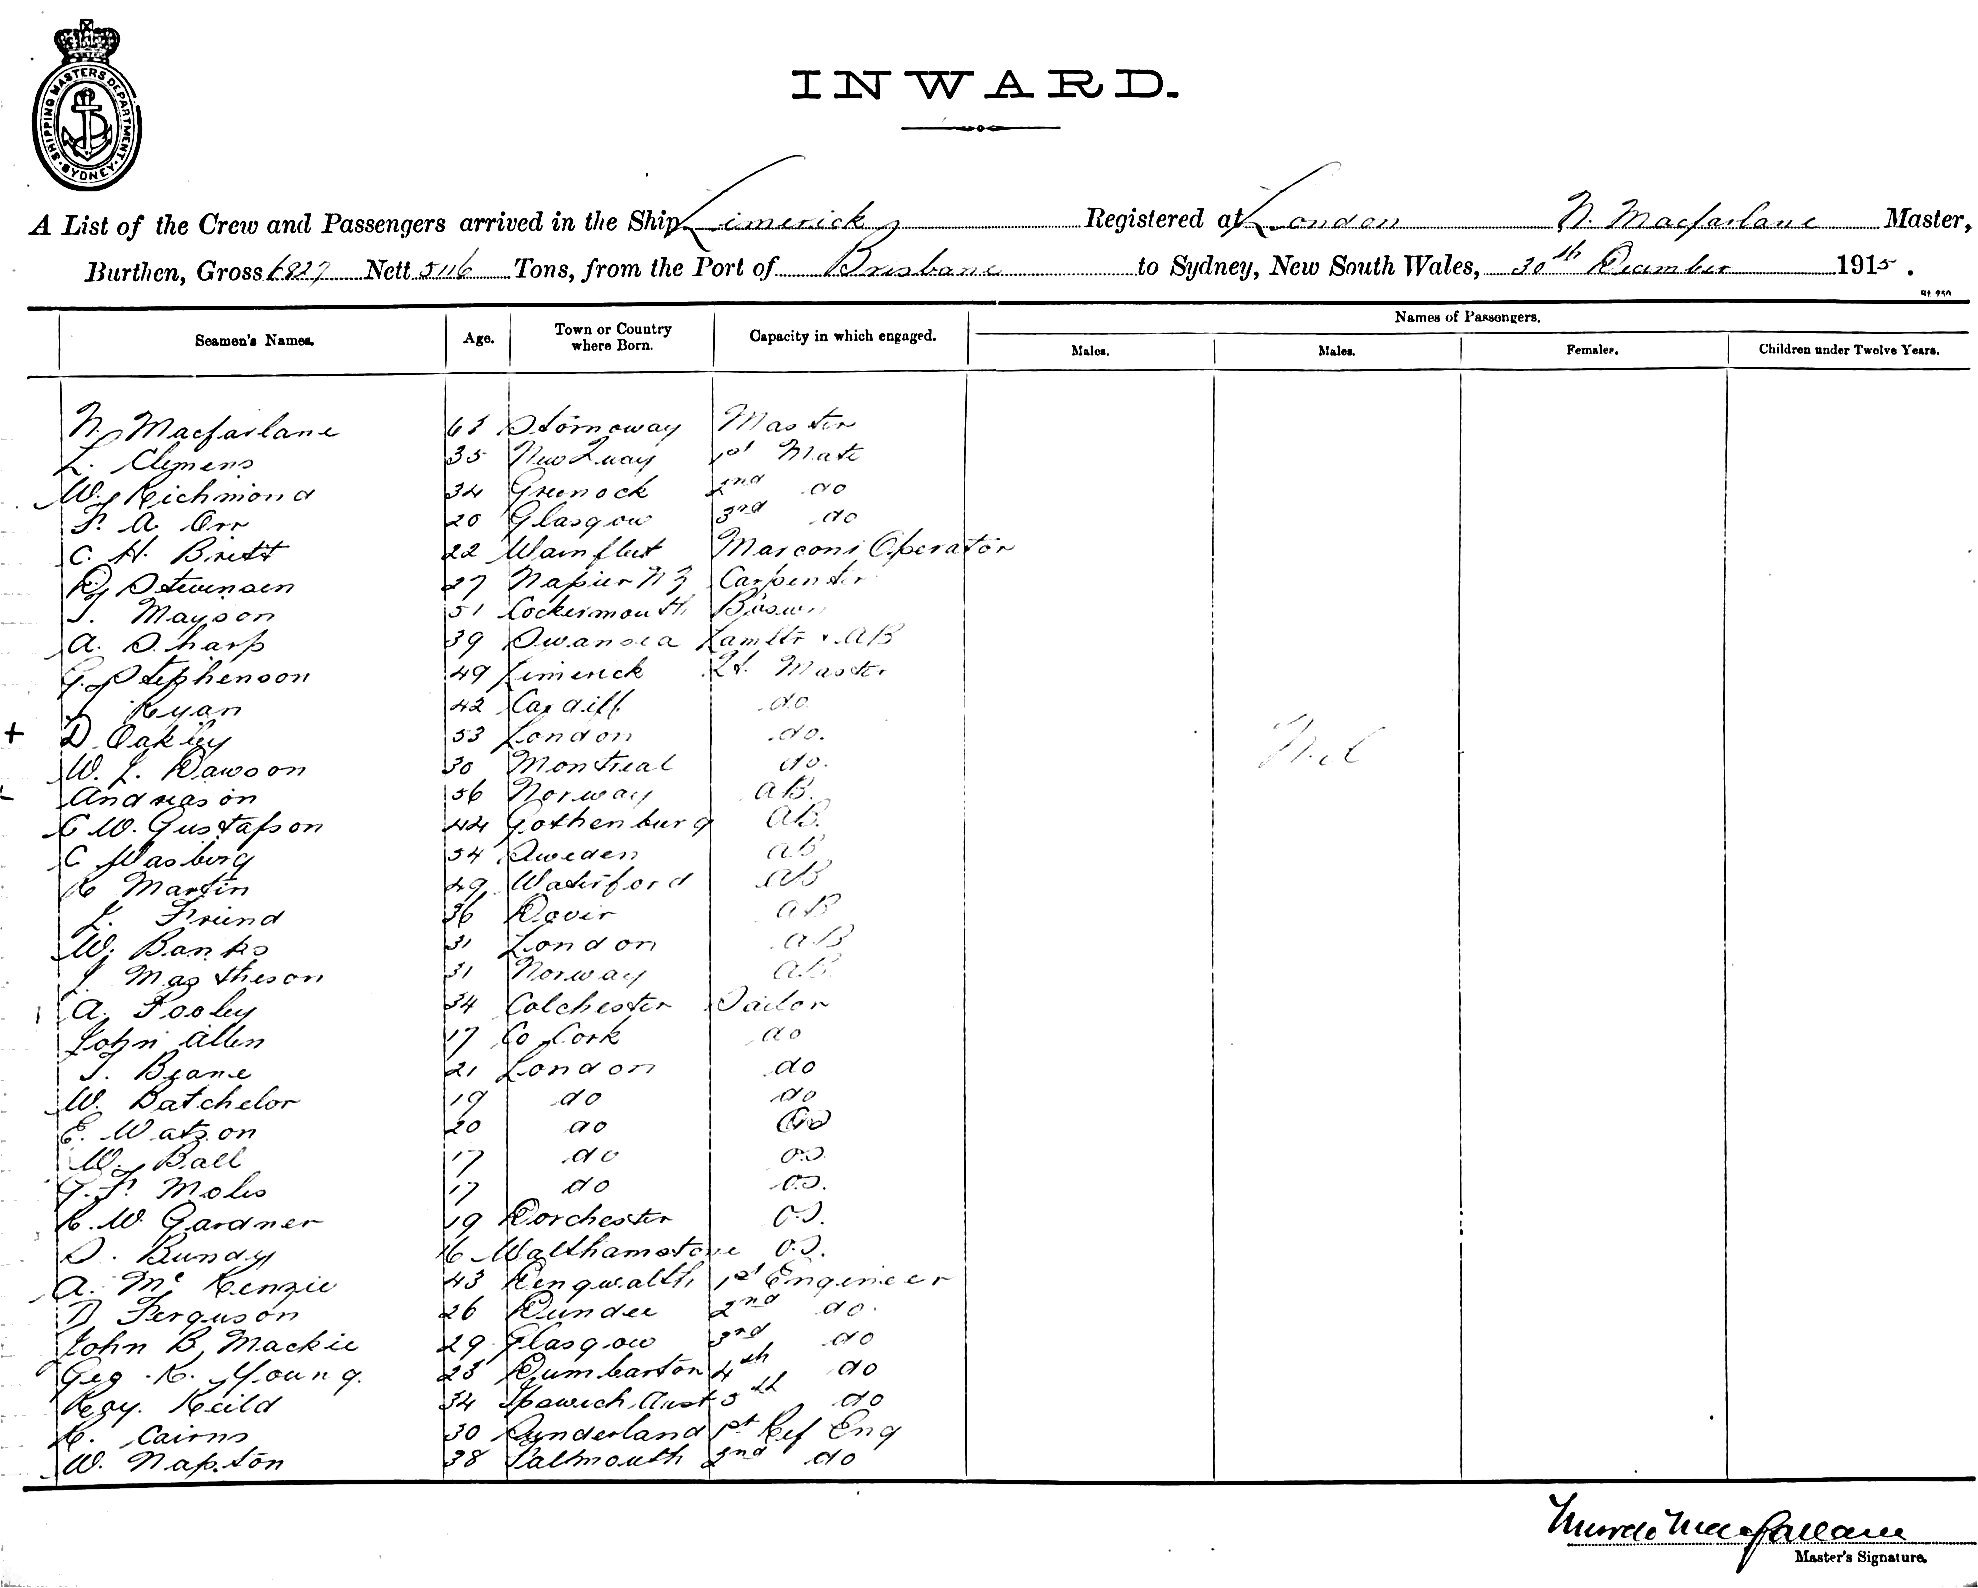 SHIPPING MASTERS DEPARTMENT SYDNEY
INWARD.
A List of the Crew and Passengers arrived in the Ship Limerick Registered at London N. Macfarlane Master,
Burthen, Gross 6827 Nett 5116 Tons, from the Port of Brisbane to Sydney, New South Wales, 30th December 1915.
Seamen's Names. Age. Town or Country where Born. Capacity in which engaged. Names of Passengers.
Males. Males. Females. Children under Twelve Years.
N. Macfarlane 63 Stornoway Master
L. Clemens 35 New Quay 1st Mate
W. Richmond 34 Greenock 2nd do
F. A. Orr 20 Glasgow 3rd do
C. H. Brett 22 Wainfleet Marconi Operator
Stevensen 27 Napier NZ Carpenter
Mayson 51 Cockermouth Bosun
A. Sharp 39 Swansea Lamptr & AB
G. Stephenson 49 Limerick Qt. Master
Ryan 42 Cardiff do
+ D. Oakley 53 London do.
W. J. Dawson 30 Montreal do.
Andreason 56 Norway AB.
C W. Gustafson 44 Gothenburg AB.
C Wasberg 54 Sweden AB
R Martin 49 Waterford AB
J. Friend 36 Dover AB
W. Banks 31 London AB
J. Magtheson 31 Norway AB
A. Fooley 34 Colchester Sailor
John Allen 17 Co Cork do
T. Beane 21 London do
W. Batchelor 19 do do
E. Watson 20 do
W. Ball 17 do O.S.
G. F. Moles 17 do O.S.
R. W. Gardner 19 Dorchester O.S.
S. Bundy 16 Walthamstowe O.S.
A. Mc Kenzie 43 Dengwalth 1st Engineer
D Ferguson 26 Dundee 2nd do.
John B. Mackie 29 Glasgow 3rd do
Geo. R. Young. 23 Dumbarton 4th do
Regy. Reild 34 Ipswich Aust 5th do
R. Cairns 30 Sunderland 1st Ref Eng
W. Napton 38 Falmouth 2nd do
Nil
Murdo Macfarlane
Master's Signature.